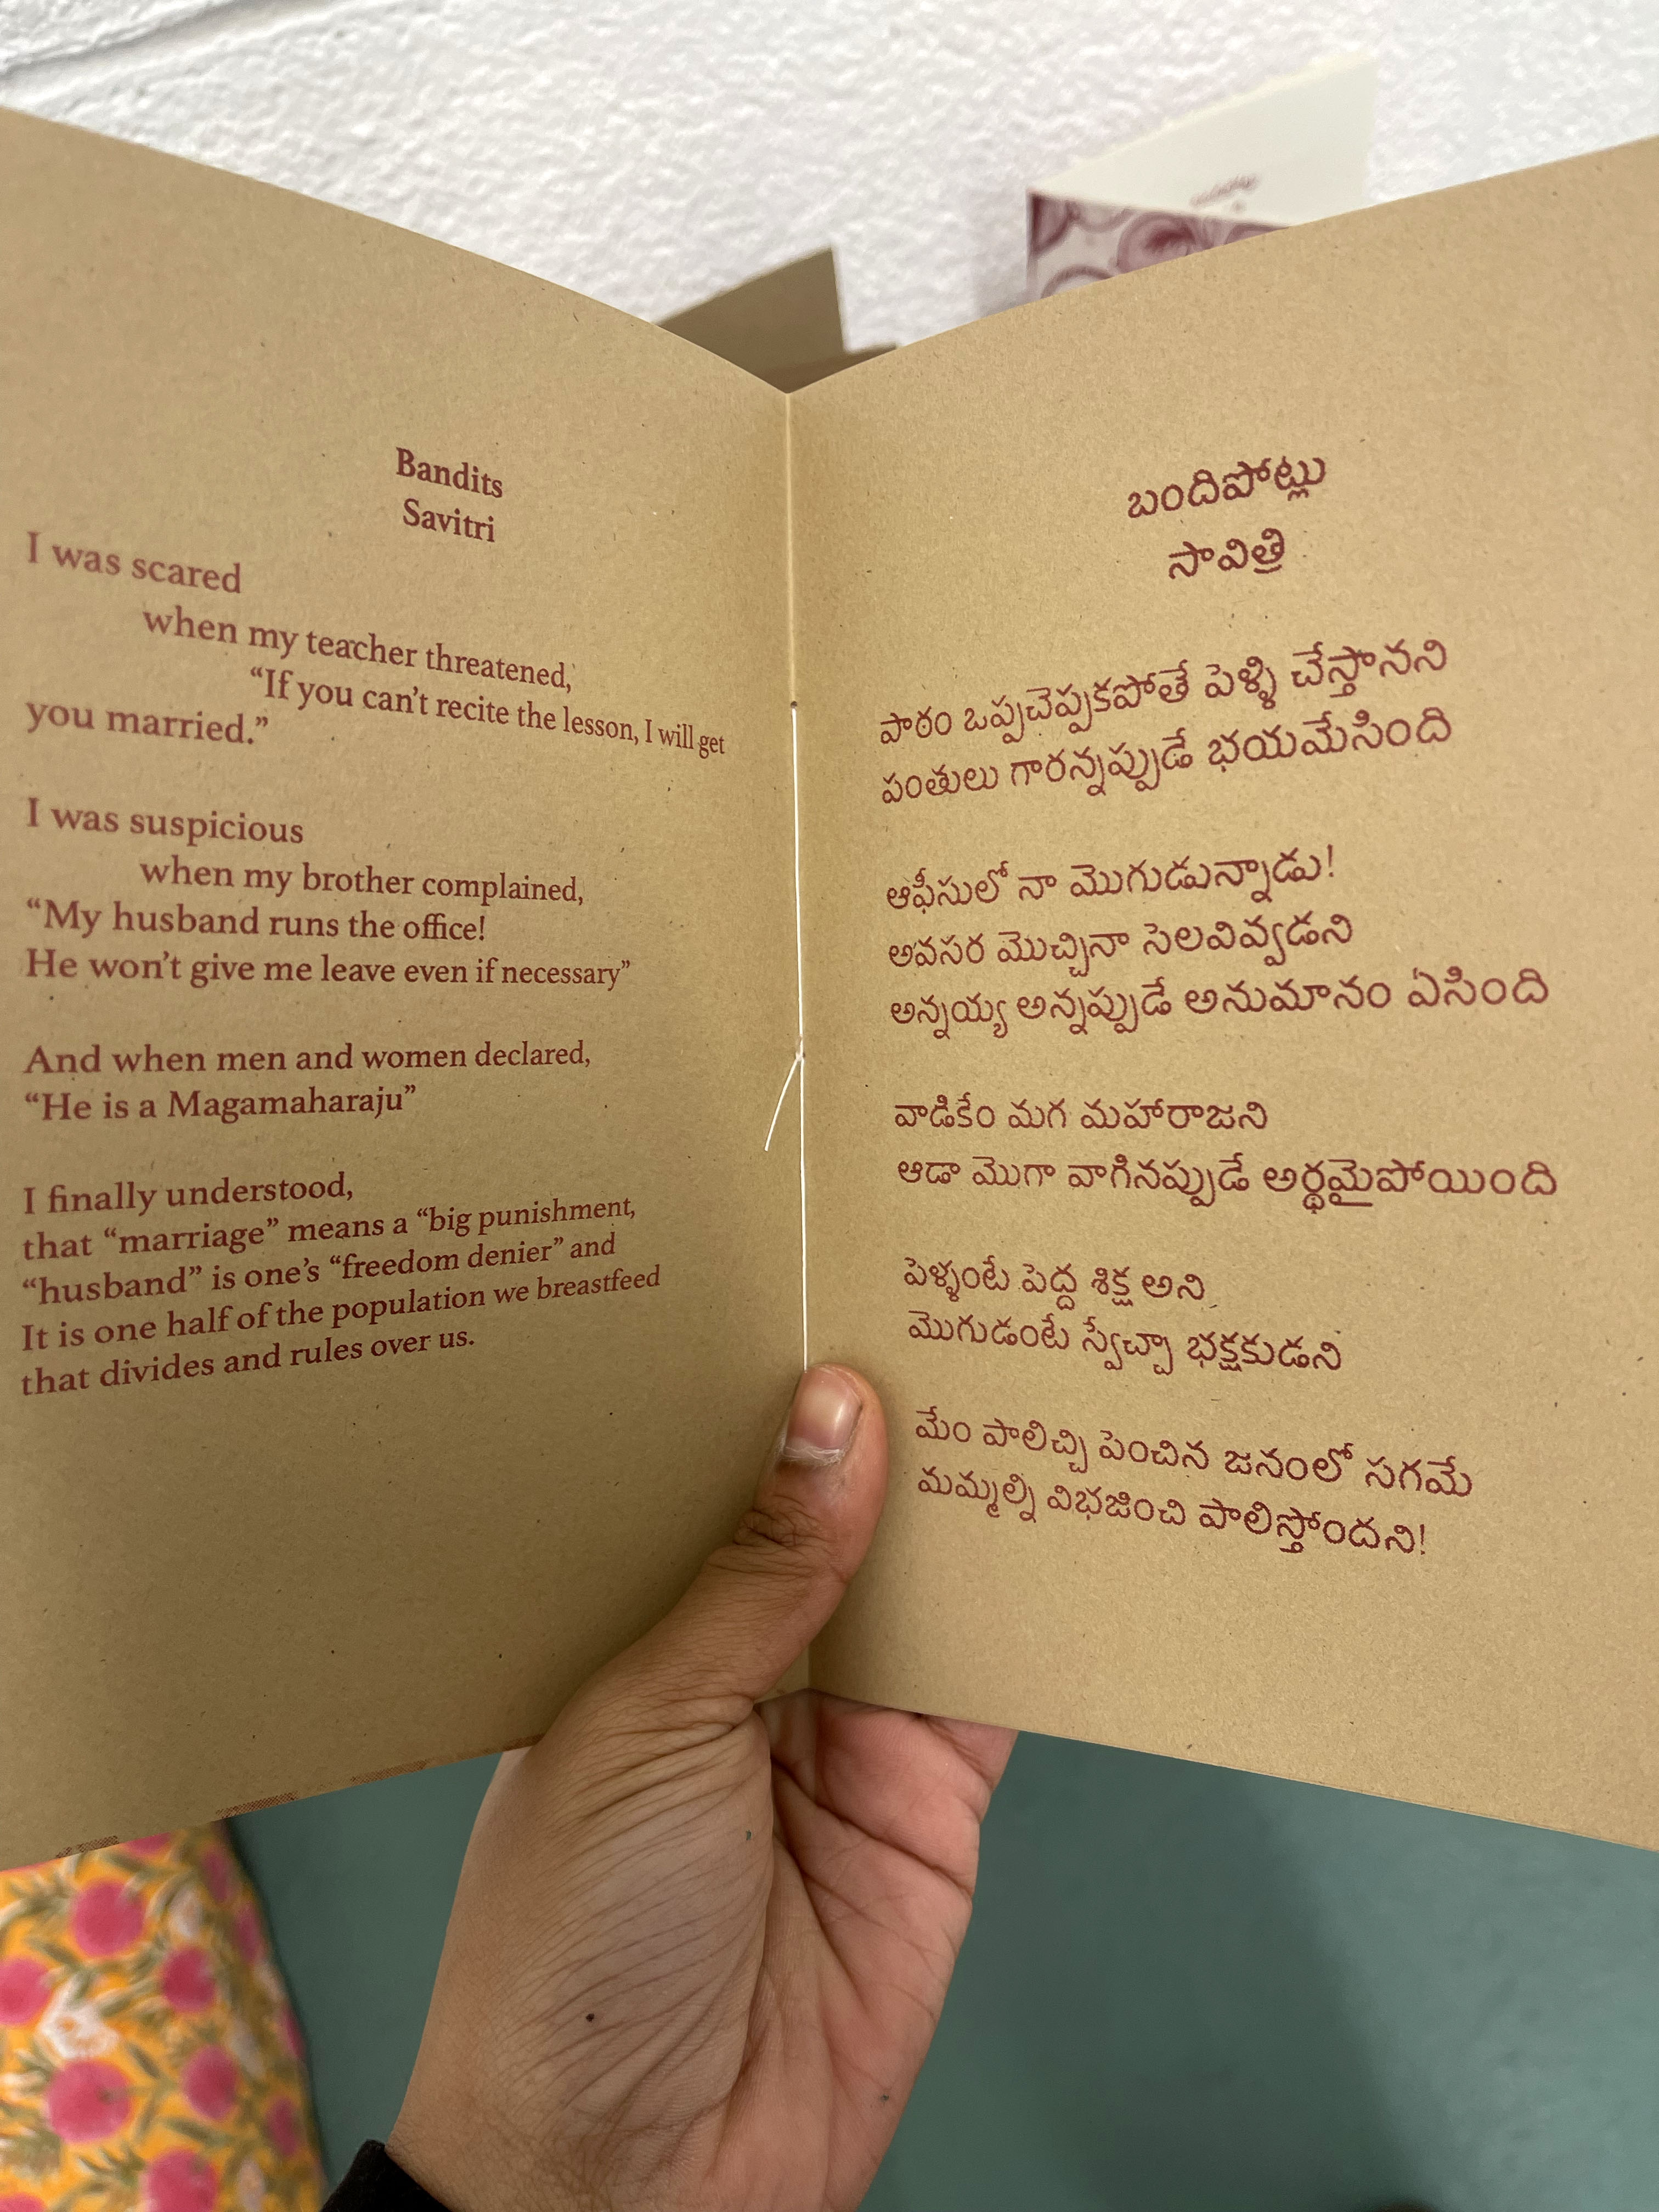 Bandits
Savitri
I was scared
when my teacher threatened,
“If you can’t recite the lesson, I will get
you married.”
I was suspicious
when my brother complained,
“My husband runs the office!
He won’t give me leave even if necessary”
And when men and women declared,
“He is a Magamaharaju”
I finally understood,
that “marriage” means a “big punishment,
“husband” is one’s “freedom denier” and
It is one half of the population we breastfeed
that divides and rules over us.
బందిపోట్లు
సావిత్రి
పాఠం ఒప్పచెప్పకపోతే పెళ్ళి చేస్తానని
పంతులు గారన్నప్పుడే భయమేసింది
ఆఫీసులో నా మొగుడున్నాడు!
అవసర మొచ్చినా సెలవివ్వడని
అన్నయ్య అన్నప్పుడే అనుమానం ఏసింది
వాడికేం మగ మహారాజని
ఆడా మొగా వాగినప్పుడే అర్థమైపోయింది
పెళ్ళంటే పెద్ద శిక్ష అని
మొగుడంటే స్వేచ్ఛా భక్షకుడని
మేం పాలిచ్చి పెంచిన జనంలో సగమే
మమ్మల్ని విభజించి పాలిస్తోందని!